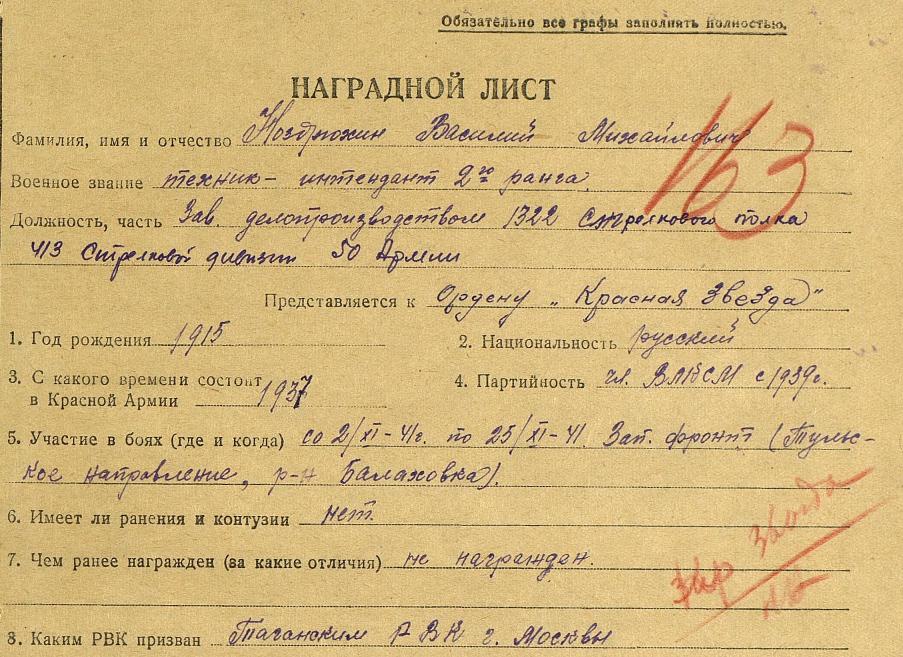 Обязательно все графы заполнять полностью.
НАГРАДНОЙ ЛИСТ
163
Фамилия, имя и отчество Василий Михайлович
Военное звание техник – интендант 2го ранга
Должность, часть Зав. делопроизводством 1322 Стрелкового полка
413 Стрелковой дивизии 50 Армии
Представляется к Ордену „Красная Звезда"
1. Год рождения 1915
2. Национальность русский
3. С какого времени состоит
в Красной Армии 1937
4. Партийность чл. ВЛКСМ с 1939г.
5. Участие в боях (где и когда) со 2/XI – 41г. по 25/XI – 41 Зап. фронт (Туль-
ское направление, р-н Балаховка).
6. Имеет ли ранения и контузии нет.
7. Чем ранее награжден (за какие отличия) не награжден.
8. Каким РВК призван Таганским РВК г. Москвы